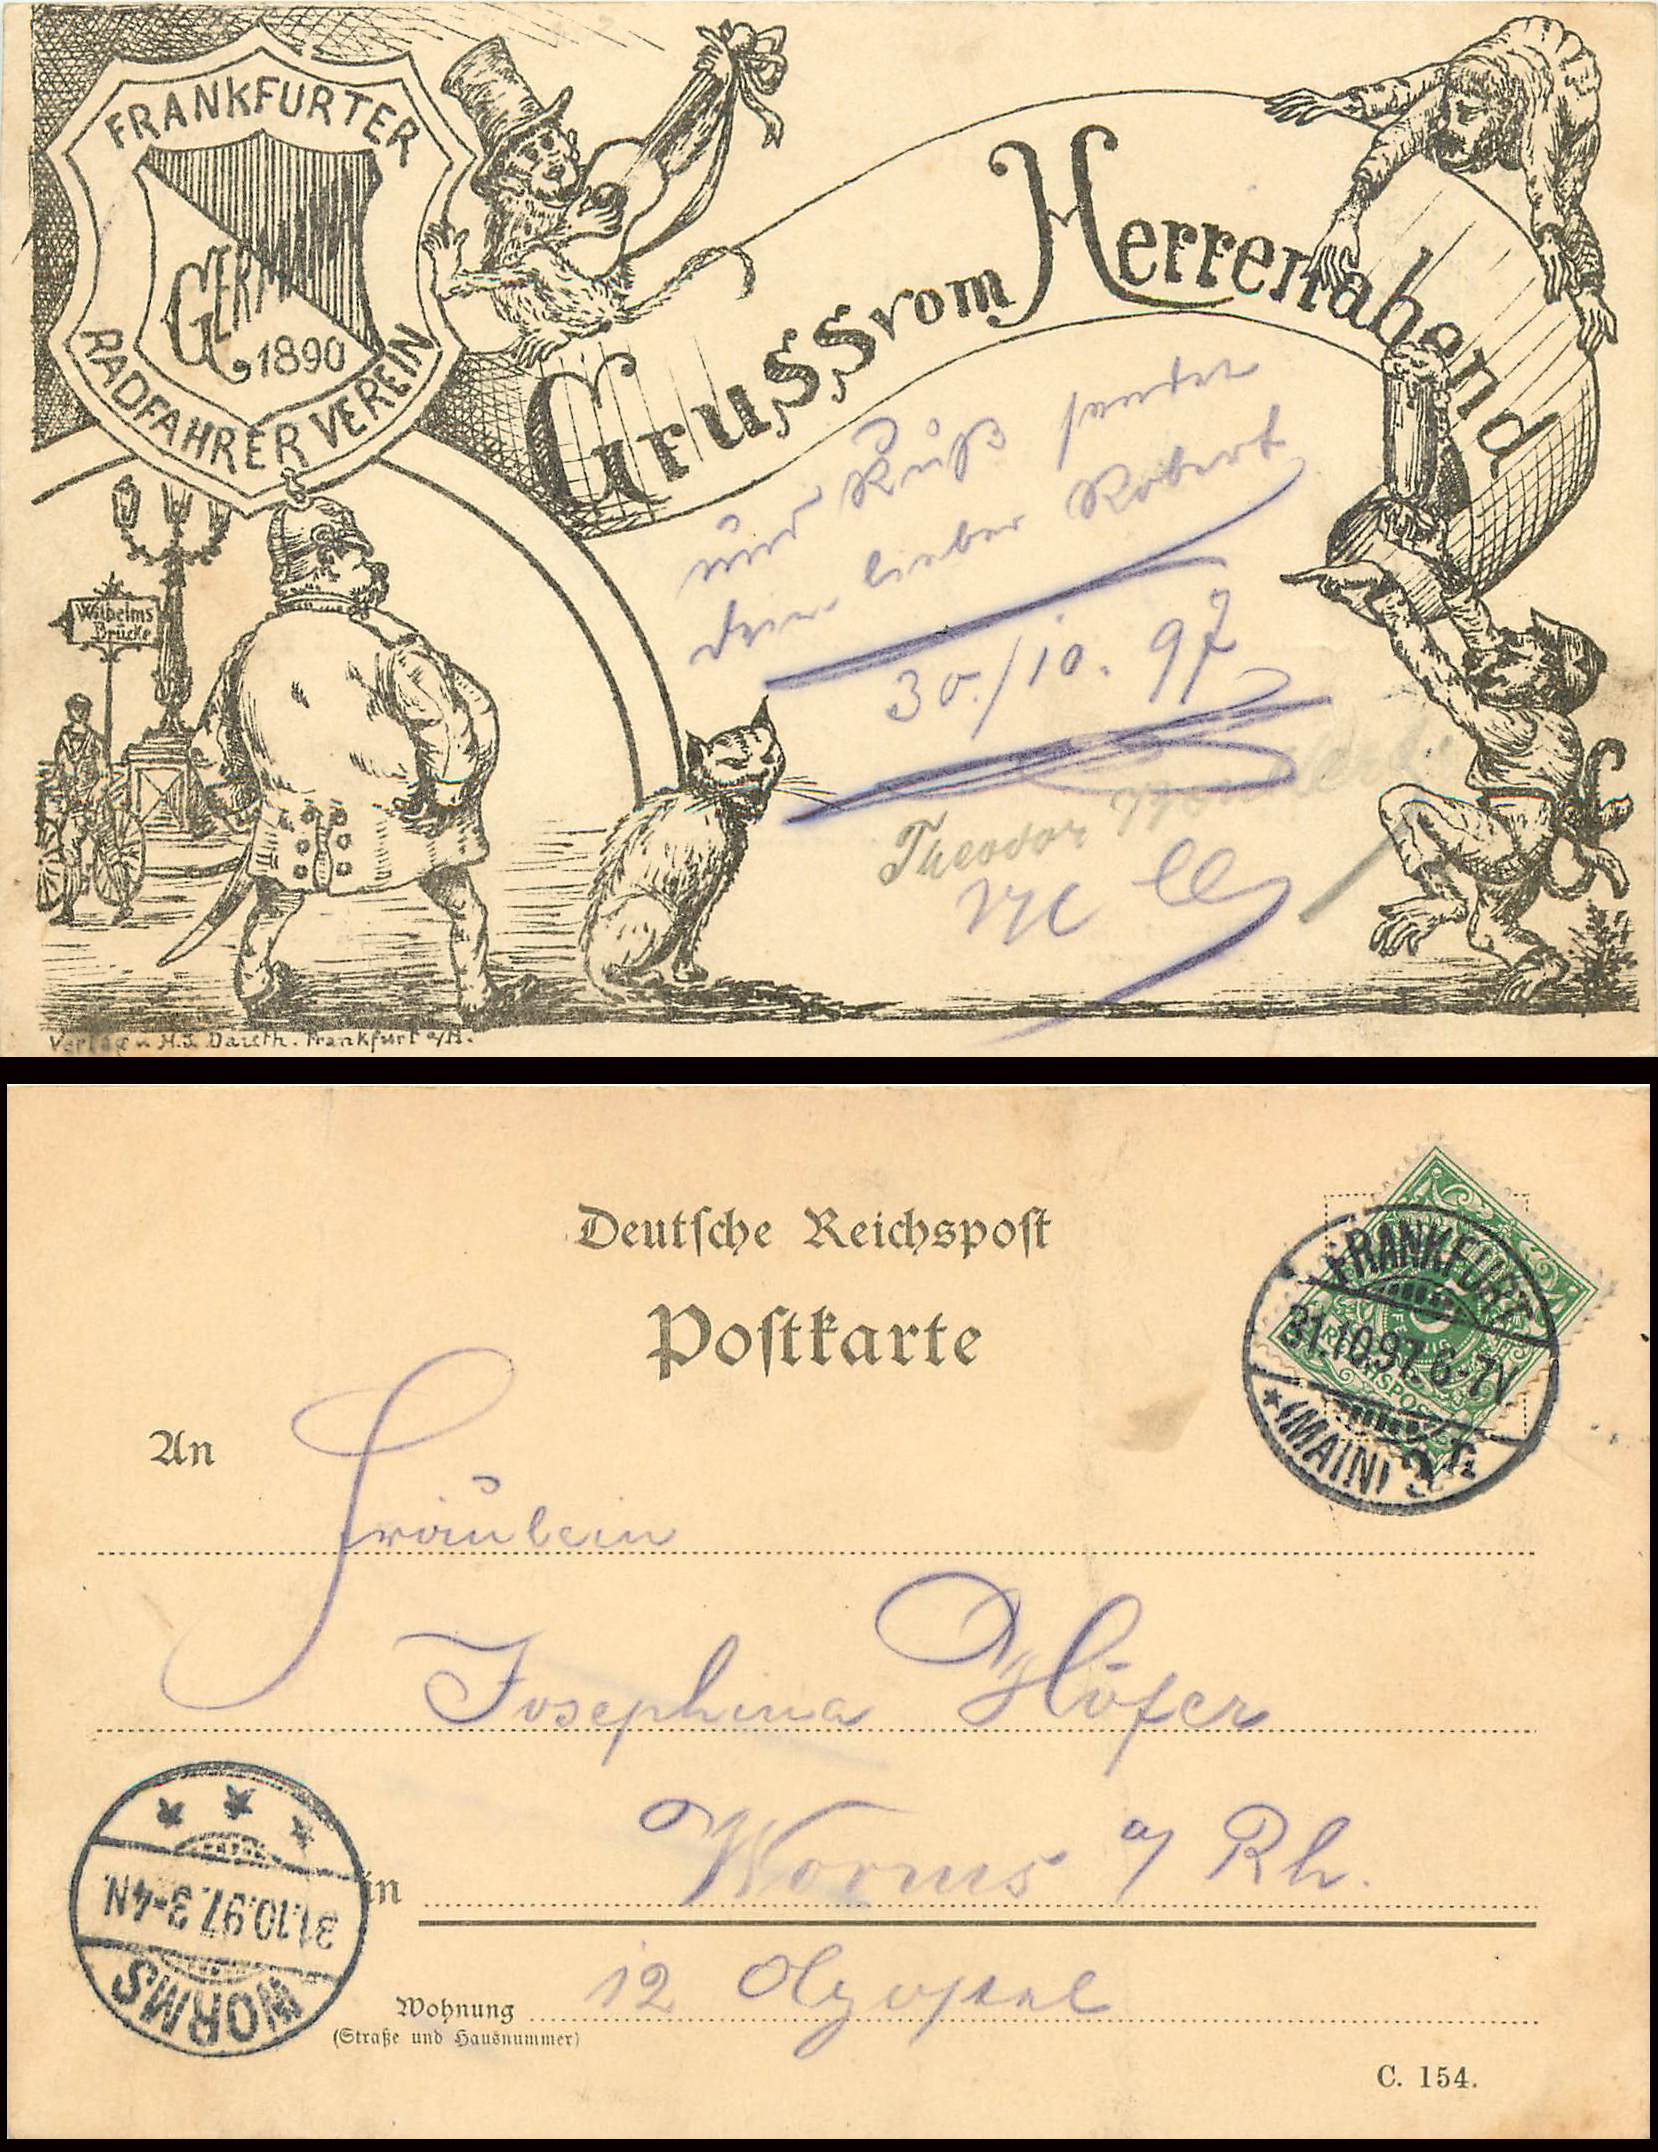 FRANKFURTER
GERMANIA
1890
RADFAHRER VEREIN
Gruss vom Herrenabend
und Kuß sendet
Dein lieber Robert
30./10. 97
Theodor
Wilhelms
Brücke
Verlag v. H.J. Frankfurt a/M.
Deutsche Reichspost
Postkarte
FRANKFURT
31.10.97. 6-7V
* (MAIN) 3
REICHSPOST
An
Fräulein
Josephina Höfer
in
Worms a/ Rh.
WORMS
31.10.97. 3-4N.
Wohnung
12
(Straße und Hausnummer)
C. 154.